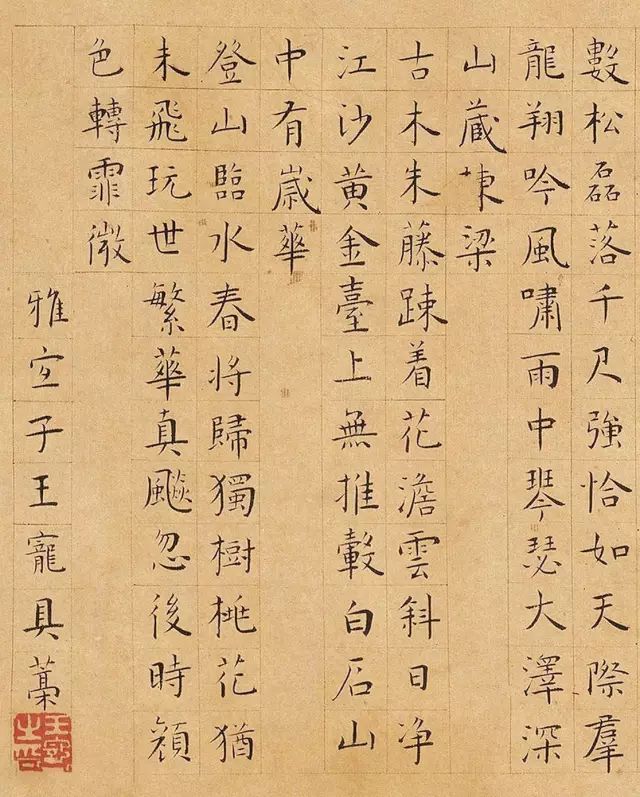 數松磊落千尺強恰如天際羣
龍翔吟風嘯雨中琴瑟大澤深
山蔵棟梁
古木朱藤踈着花澹雲斜日净
江沙黄金臺上無推轂白石山
中有歲華
登山臨水春將歸獨樹桃花猶
未飛玩世繁華真飈忽後時顔
色轉霏微
雅宜子王寵具藁